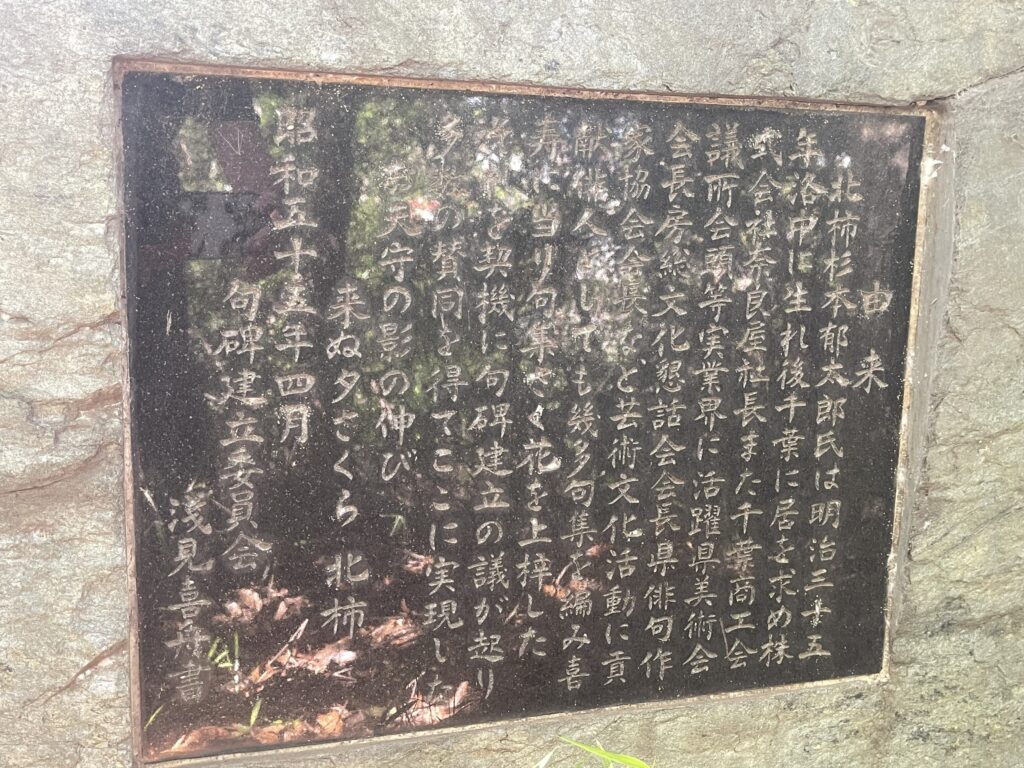 由来
北柿杉本郁太郎氏は明治三十五
年洛中に生れ後千葉に居を求め株
式会社奈良屋社長また千葉商工会
議所会頭等実業界に活躍県美術会
会長房総文化懇話会会長県俳句作
家協会会長など芸術文化活動に貢
献俳人としても幾多句集を編み喜
寿に当り句集さく花を上梓した
を契機に句碑建立の議が起り
多数の賛同を得てここに実現した
天守の影の伸び
来ぬ夕さくら 北柿
昭和五十五年四月
句碑建立委員会
浅見喜舟書